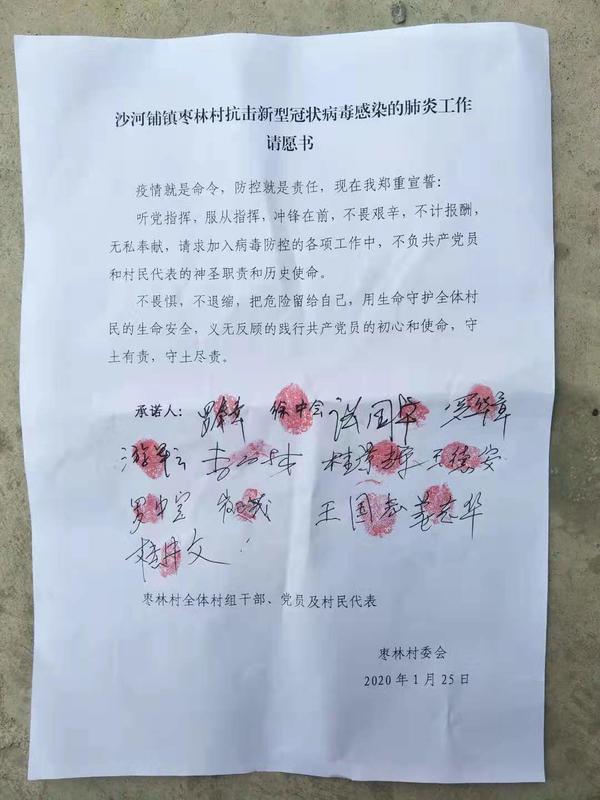 沙河铺镇枣林村抗击新型冠状病毒感染的肺炎工作
请愿书
疫情就是命令，防控就是责任，现在我郑重宣誓：
听党指挥，服从指挥，冲锋在前，不畏艰辛，不计报酬，
无私奉献，请求加入病毒防控的各项工作中，不负共产党员
和村民代表的神圣职责和历史使命。
不畏惧，不退缩，把危险留给自己，用生命守护全体村
民的生命安全，义无反顾的践行共产党员的初心和使命，守
土有责，守土尽责。
承诺人： 徐中会
王德安
王国志
枣林村全体村组干部、党员及村民代表
枣林村委会
2020 年 1 月 25 日